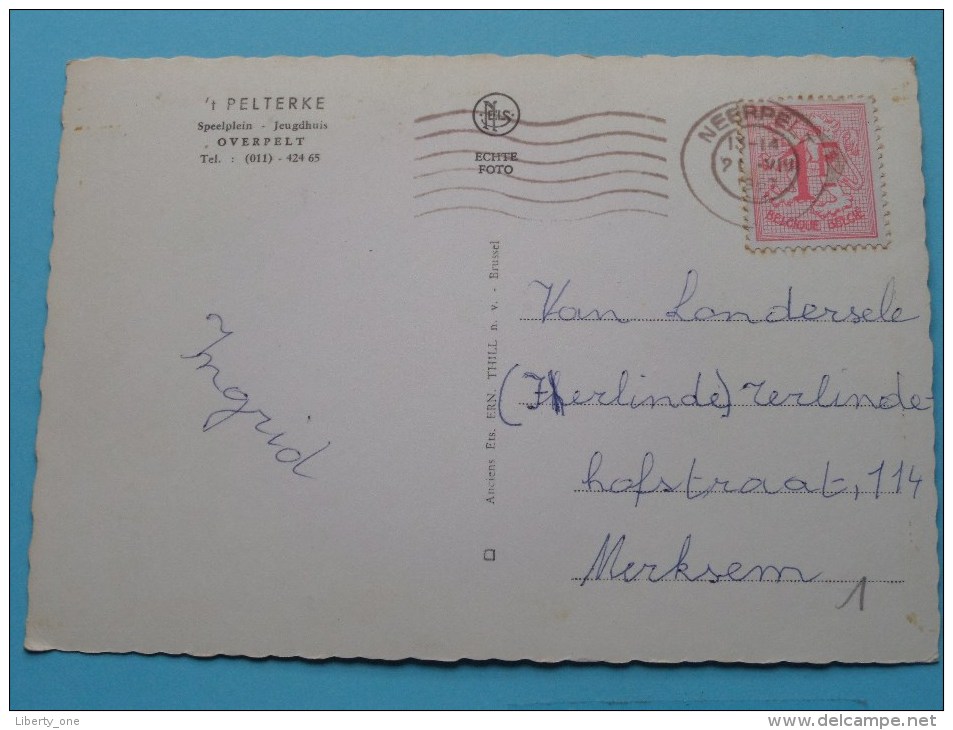 't PELTERKE
Speelplein - Jeugdhuis
OVERPELT
Tel. : (011) - 424 65
NELS
ECHTE
FOTO
NEERPELT
13-14
1F
BELGIQUE BELGIE
Anciens Ets. ERN. THILL n. v. - Brussel
Ingrid
Van Londersele
(Herlinde) Terlinde-
hofstraat, 114
Merksem
1
Liberty_one
www.delcampe.net